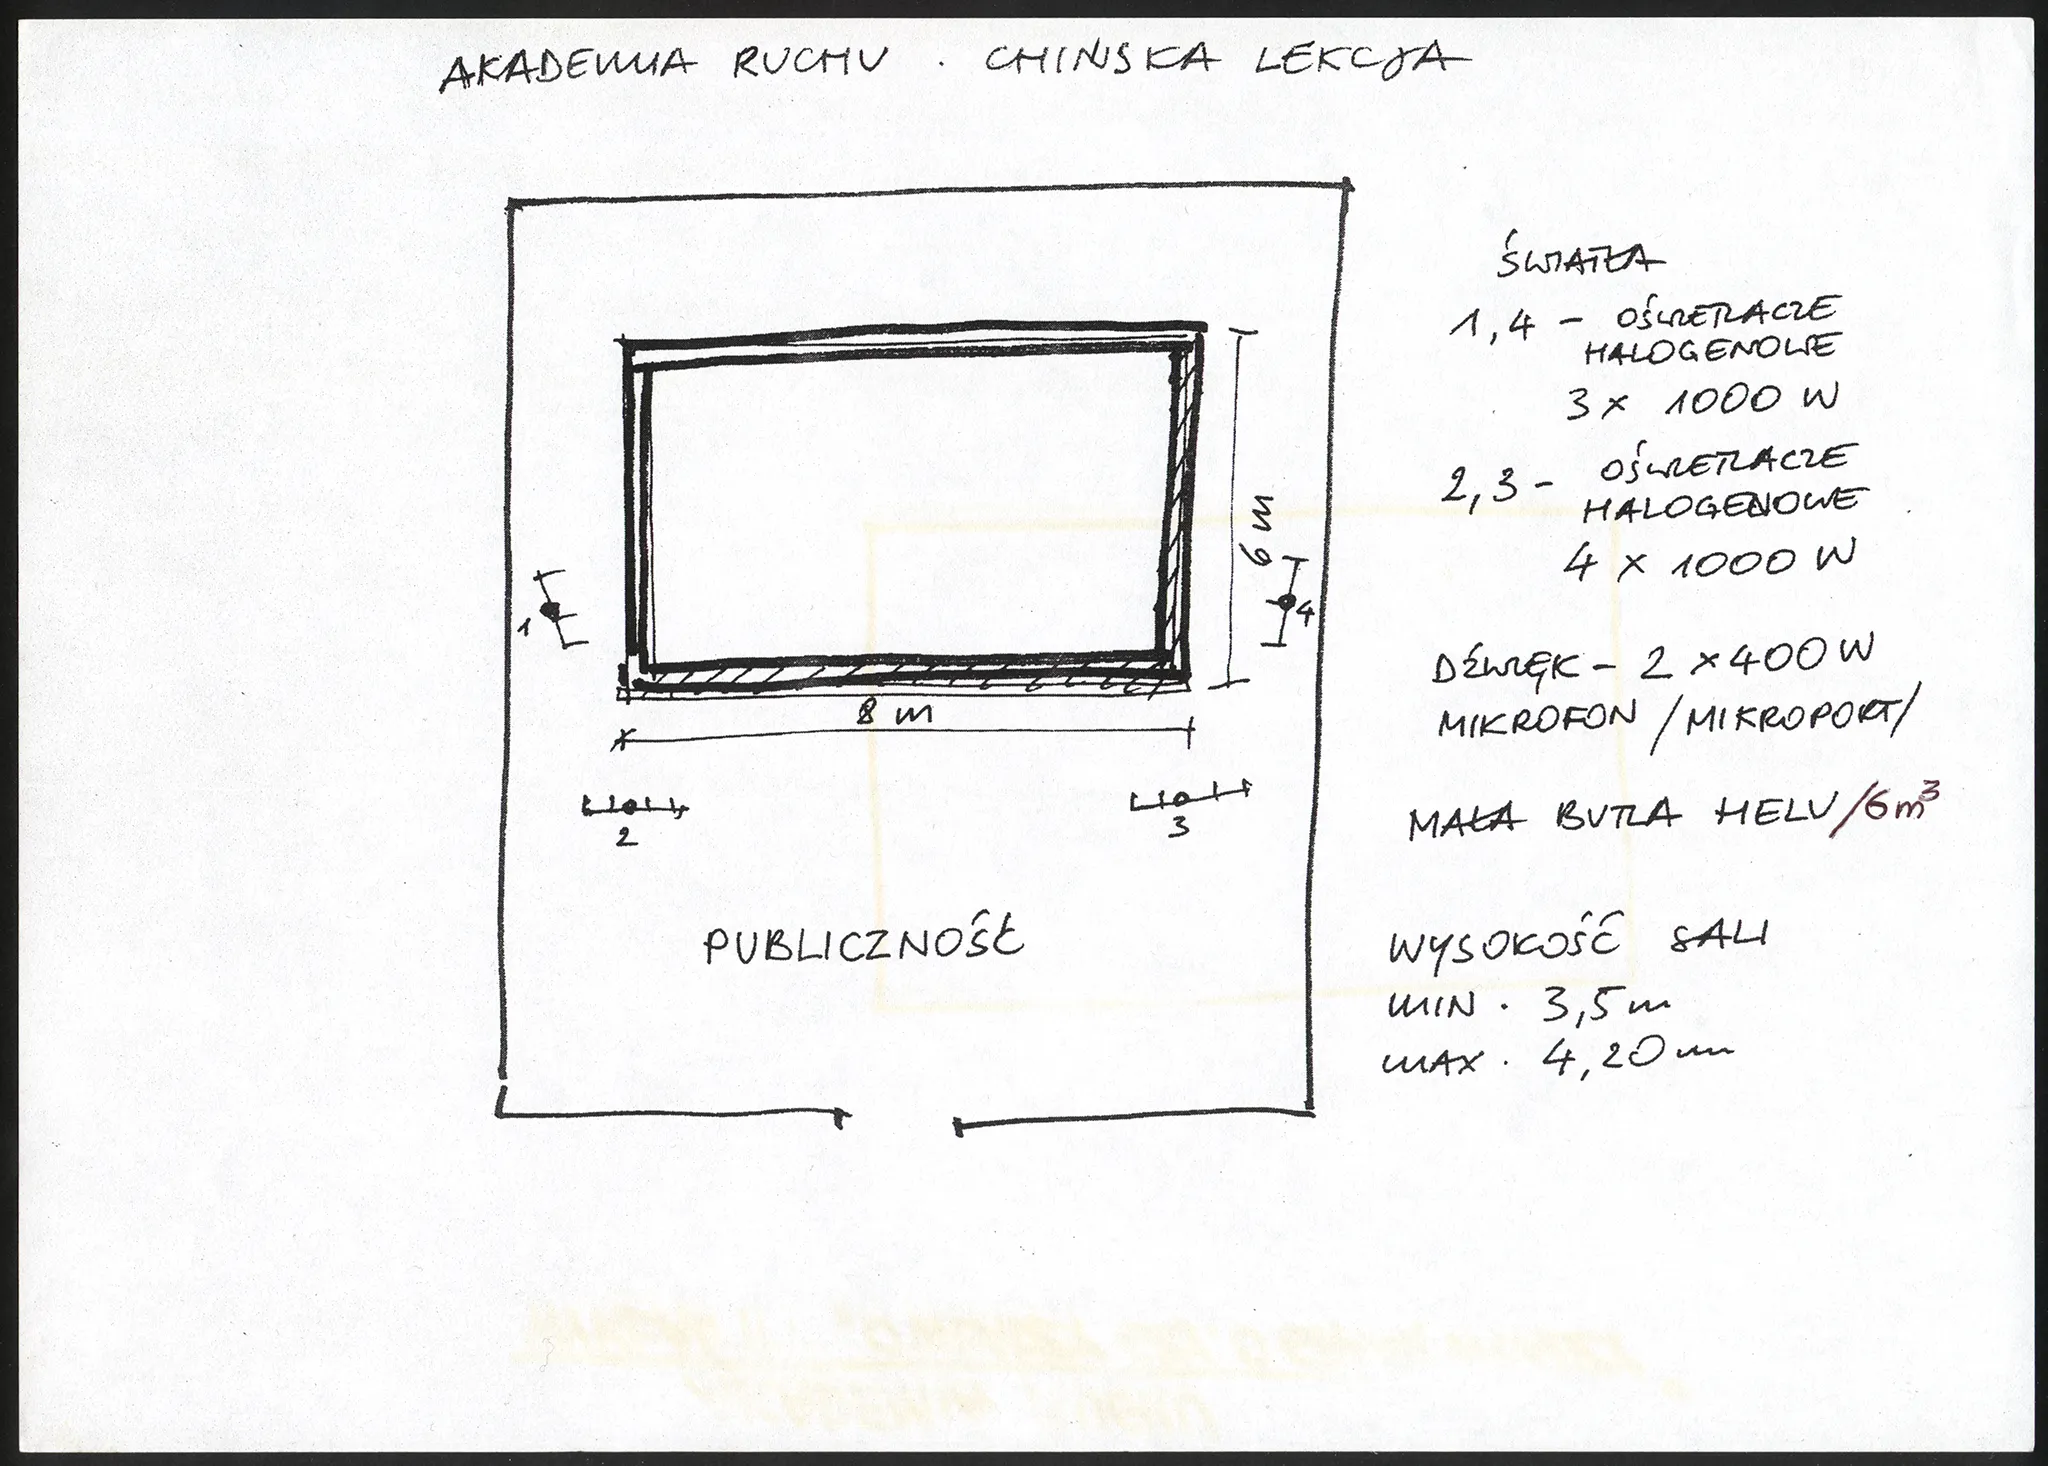 AKADEMIA RUCHU . CHIŃSKA LEKCJA
ŚWIATŁA
1,4 - OŚWIETLACZE
HALOGENOWE
3 x 1000 W
2,3 - OŚWIETLACZE
HALOGENOWE
4 x 1000 W
6 m
1
4
DŹWIĘK - 2 x 400 W
MIKROFON /MIKROPORT/
8 m
2
3
MAŁA BUTLA HELU /6m³
PUBLICZNOŚĆ
WYSOKOŚĆ SALI
MIN . 3,5 m
MAX . 4,20 m